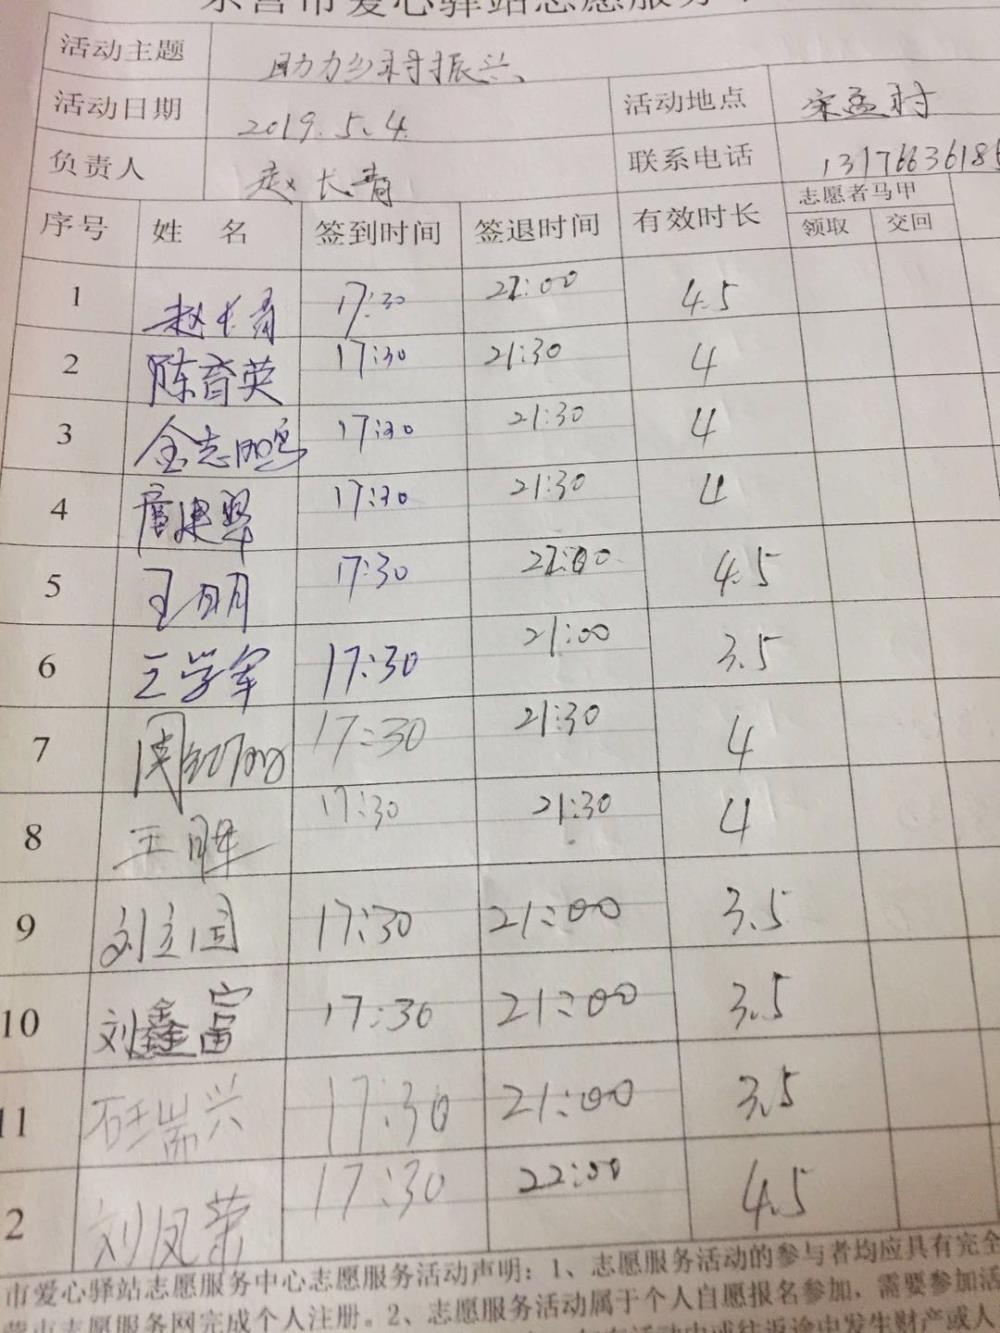 东营市爱心驿站志愿服务
活动主题 助力乡村振兴
活动日期 2019.5.4. 活动地点 宋孟村
负责人 赵长青 联系电话 1317663618
序号 姓 名 签到时间 签退时间 有效时长 志愿者马甲
领取 交回
1 赵长青 17:30 22:00 4.5
2 陈育英 17:30 21:30 4
3 金志鸣 17:30 21:30 4
4 唐建翠 17:30 21:30 4
5 王明 17:30 22:00 4.5
6 王学军 17:30 21:00 3.5
7 周 17:30 21:30 4
8 王胜 17:30 21:30 4
9 刘立国 17:30 21:00 3.5
10 刘鑫富 17:30 21:00 3.5
11 石瑞兴 17:30 21:00 3.5
2 刘凤荣 17:30 22:00 4.5
市爱心驿站志愿服务中心志愿服务活动声明：1、志愿服务活动的参与者均应具有完全
营市志愿服务网完成个人注册。2、志愿服务活动属于个人自愿报名参加，需要参加活
在活动中或往返途中发生财产或人